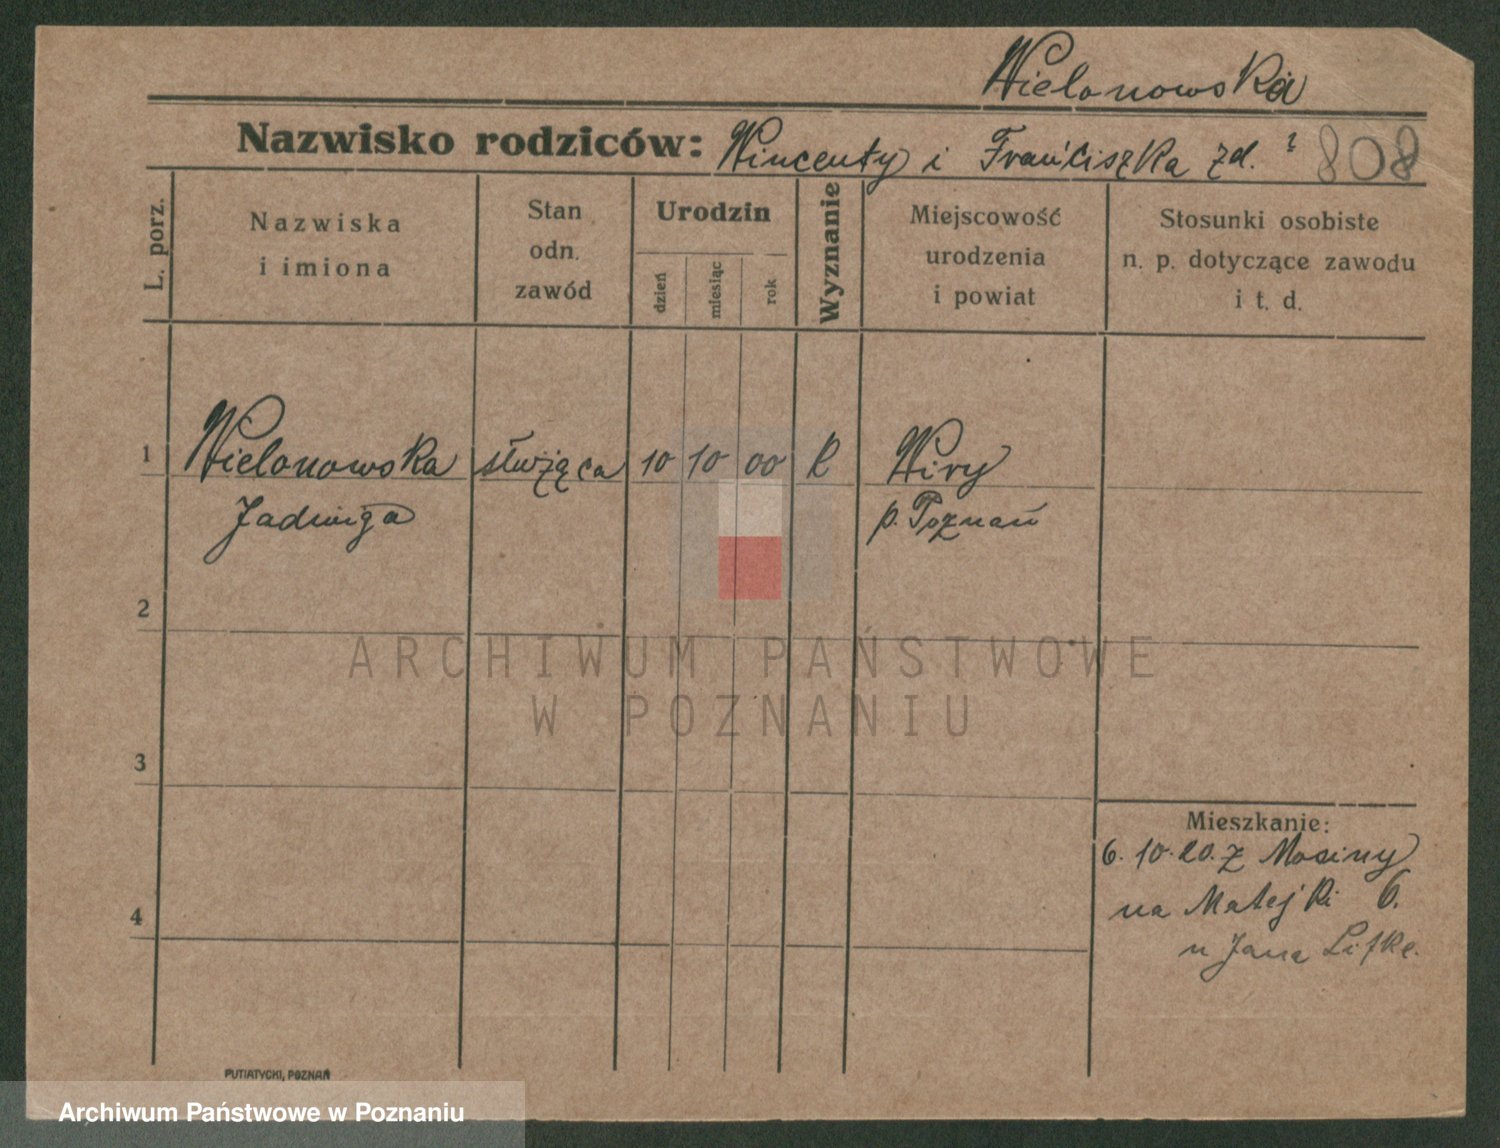 Wielonowska
Nazwisko rodziców: Wincenty i Franciszka zd. ? 808
L. porz.
Nazwiska
i imiona
Stan
odn.
zawód
Urodzin
dzień
miesiąc
rok
Wyznanie
Miejscowość
urodzenia
i powiat
Stosunki osobiste
n. p. dotyczące zawodu
i t. d.
1 Wielonowska służąca 10 10 00 k Wiry
Jadwiga p. Poznań
2
ARCHIWUM PAŃSTWOWE
W POZNANIU
3
Mieszkanie:
6. 10. 20. z Mosiny
4 na Matejki 6.
u Jana Lifke.
PUTIATYCKI, POZNAŃ
Archiwum Państwowe w Poznaniu